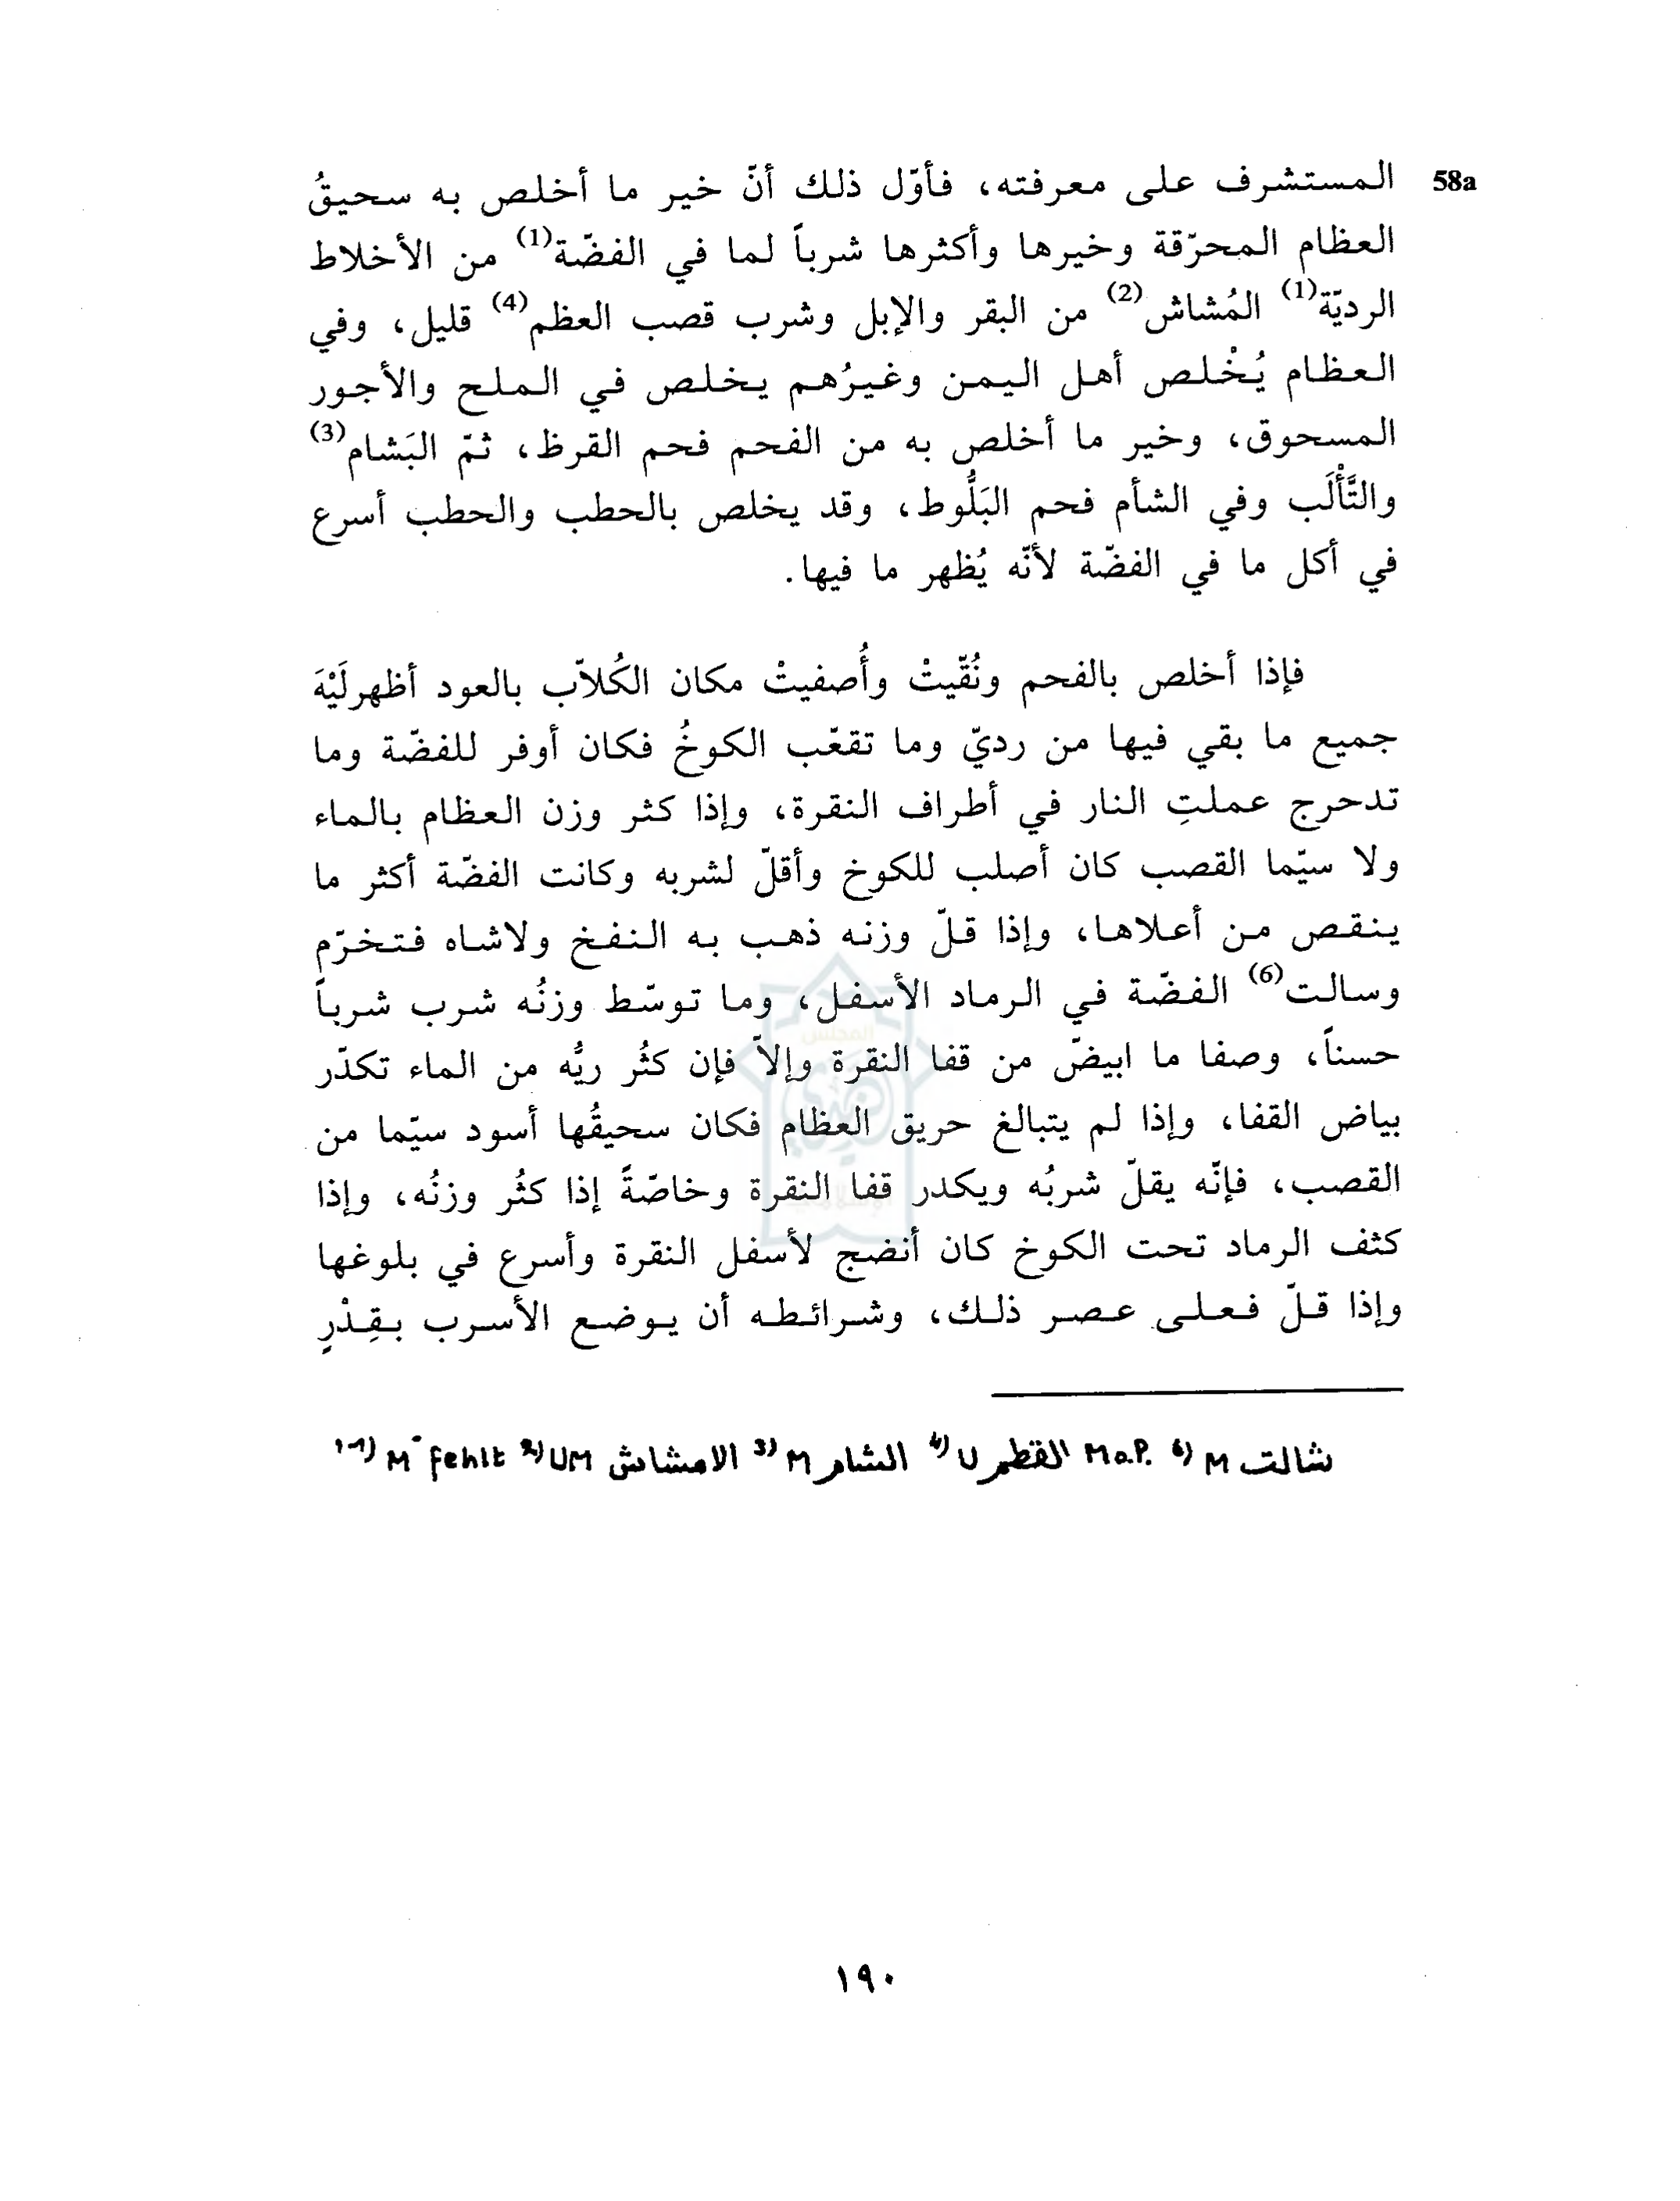 58a المستشرف على معرفته، فأوّل ذلك أنّ خير ما أخلص به سحيقُ
العظام المحرّقة وخيرها وأكثرها شرباً لما في الفضّة(1) من الأخلاط
الرديّة(1) المُشاش(2) من البقر والإبل وشرب قصب العظم(4) قليل، وفي
العظام يُخْلص أهل اليمن وغيرُهم يخلص في الملح والأجور
المسحوق، وخير ما أخلص به من الفحم فحم القرظ، ثمّ البَشام(3)
والتَّأْلَب وفي الشأم فحم البَلُّوط، وقد يخلص بالحطب والحطب أسرع
في أكل ما في الفضّة لأنّه يُظهر ما فيها.
فإذا أخلص بالفحم ونُقّيتْ وأُصفيتْ مكان الكُلاّب بالعود أظهرلَيْهَ
جميع ما بقي فيها من رديّ وما تقعّب الكوخُ فكان أوفر للفضّة وما
تدحرج عملتِ النار في أطراف النقرة، وإذا كثر وزن العظام بالماء
ولا سيّما القصب كان أصلب للكوخ وأقلّ لشربه وكانت الفضّة أكثر ما
ينقص من أعلاها، وإذا قلّ وزنه ذهب به النفخ ولاشاه فتخرّم
وسالت(6) الفضّة في الرماد الأسفل، وما توسّط وزنُه شرب شرباً
حسناً، وصفا ما ابيضّ من قفا النقرة وإلاّ فإن كثُر ريُّه من الماء تكدّر
بياض القفا، وإذا لم يتبالغ حريق العظام فكان سحيقُها أسود سيّما من
القصب، فإنّه يقلّ شربُه ويكدر قفا النقرة وخاصّةً إذا كثُر وزنُه، وإذا
كثف الرماد تحت الكوخ كان أنضج لأسفل النقرة وأسرع في بلوغها
وإذا قلّ فعلى عصر ذلك، وشرائطه أن يوضع الأسرب بقِدْرٍ
1-1) M fehlt 2) UM الامشاش 3) M الشام 4) U القطم M o.P. 6) M شالت
١٩٠